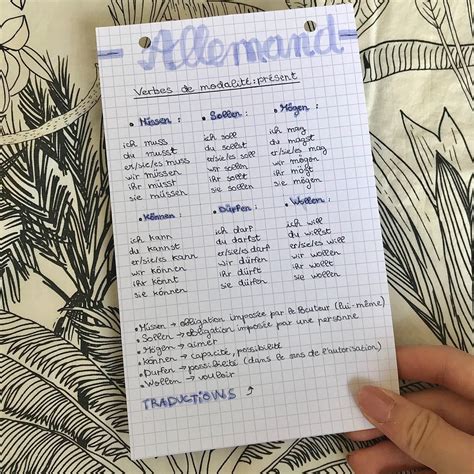 Allemand
Verbes de modalité : présent
• Müssen :
ich muss
du musst
er/sie/es muss
wir müssen
ihr müsst
sie müssen
• Sollen :
ich soll
du sollst
er/sie/es soll
wir sollen
ihr sollt
sie sollen
• Mögen :
ich mag
du magst
er/sie/es mag
wir mögen
ihr mögt
sie mögen
• Können :
ich kann
du kannst
er/sie/es kann
wir können
ihr könnt
sie können
• Dürfen :
ich darf
du darfst
er/sie/es darf
wir dürfen
ihr dürft
sie dürfen
• Wollen :
ich will
du willst
er/sie/es will
wir wollen
ihr wollt
sie wollen
• Müssen → obligation imposée par le locuteur (lui-même)
• Sollen → obligation imposée par une personne
• Mögen → aimer
• Können → capacité, possibilité
• Dürfen → possibilité (dans le sens de l'autorisation)
• Wollen → vouloir
TRADUCTIONS